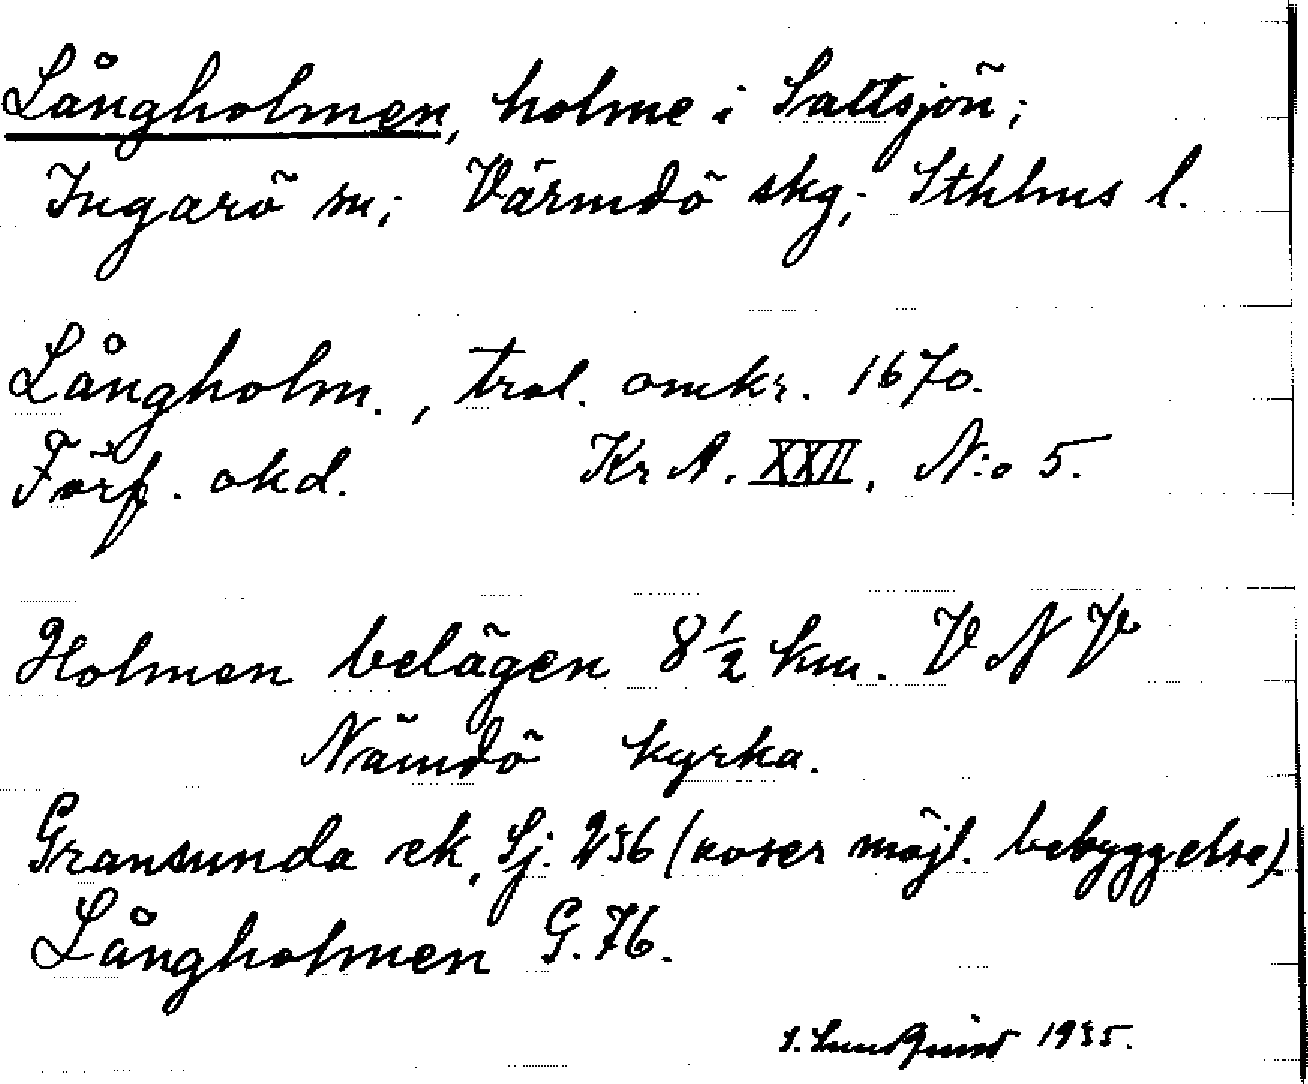 Långholmen, holme i Saltsjön;
Ingarö sn; Värmdö skg; Sthlms l.
Långholm., trol. omkr. 1670.
Förf. okd. Kr A. XXII, N:o 5.
Holmen belägen 8 1/2 km. V N V
Nämdö kyrka.
Gransunda ek, Sj. 236 (avser möjl. bebyggelse).
Långholmen G. 76.
S. Lundquist 1935.